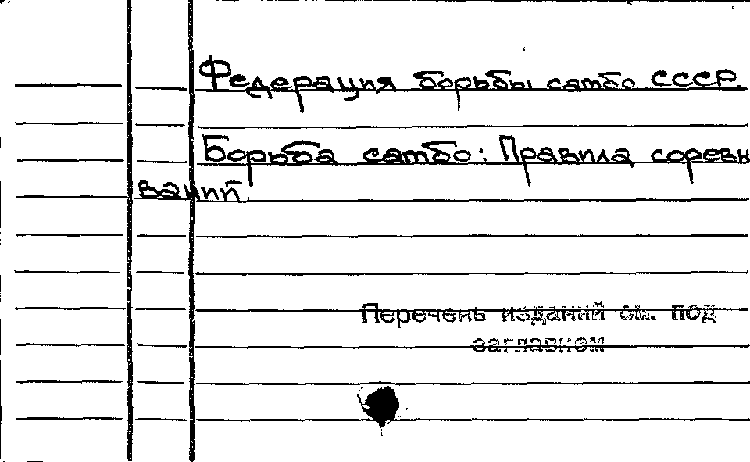 Федерация борьбы самбо СССР.
Борьба самбо: Правила соревн
ваний
Перечень изданий см. под
заглавием